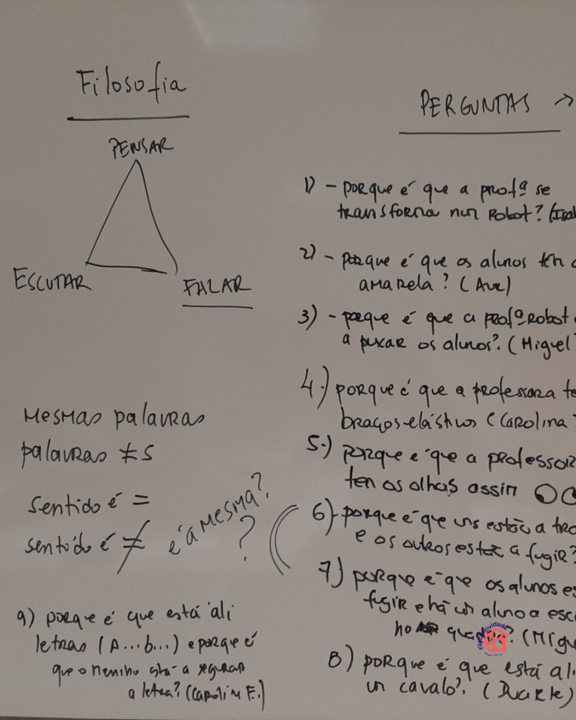 Filosofia
PENSAR
ESCUTAR
FALAR
Mesmas palavras
palavras ≠s
sentido é =
sentido é ≠
é a mesma?
?
PERGUNTAS →
1) - porque é que a profª se
transforma num Robot? (Isa
2) - porque é que os alunos têm
amarela? (
3) - porque é que a profª Robot
a puxar os alunos? (Miguel
4.) porque é que a professora te
braços elástivos (Carolina
5.) porque é que a professor
tem os olhos assim
6) - porque é que uns estão a
e os outros estão a fugir?
7) porque é que os alunos es
fugir e há um aluno a esc
no
8) porque é que está ali
un cavalo? (Duarte)
9) porque é que está ali
letras (A...b...) e porque é
que o menino está a segurar
a letra? (Carolina F.)